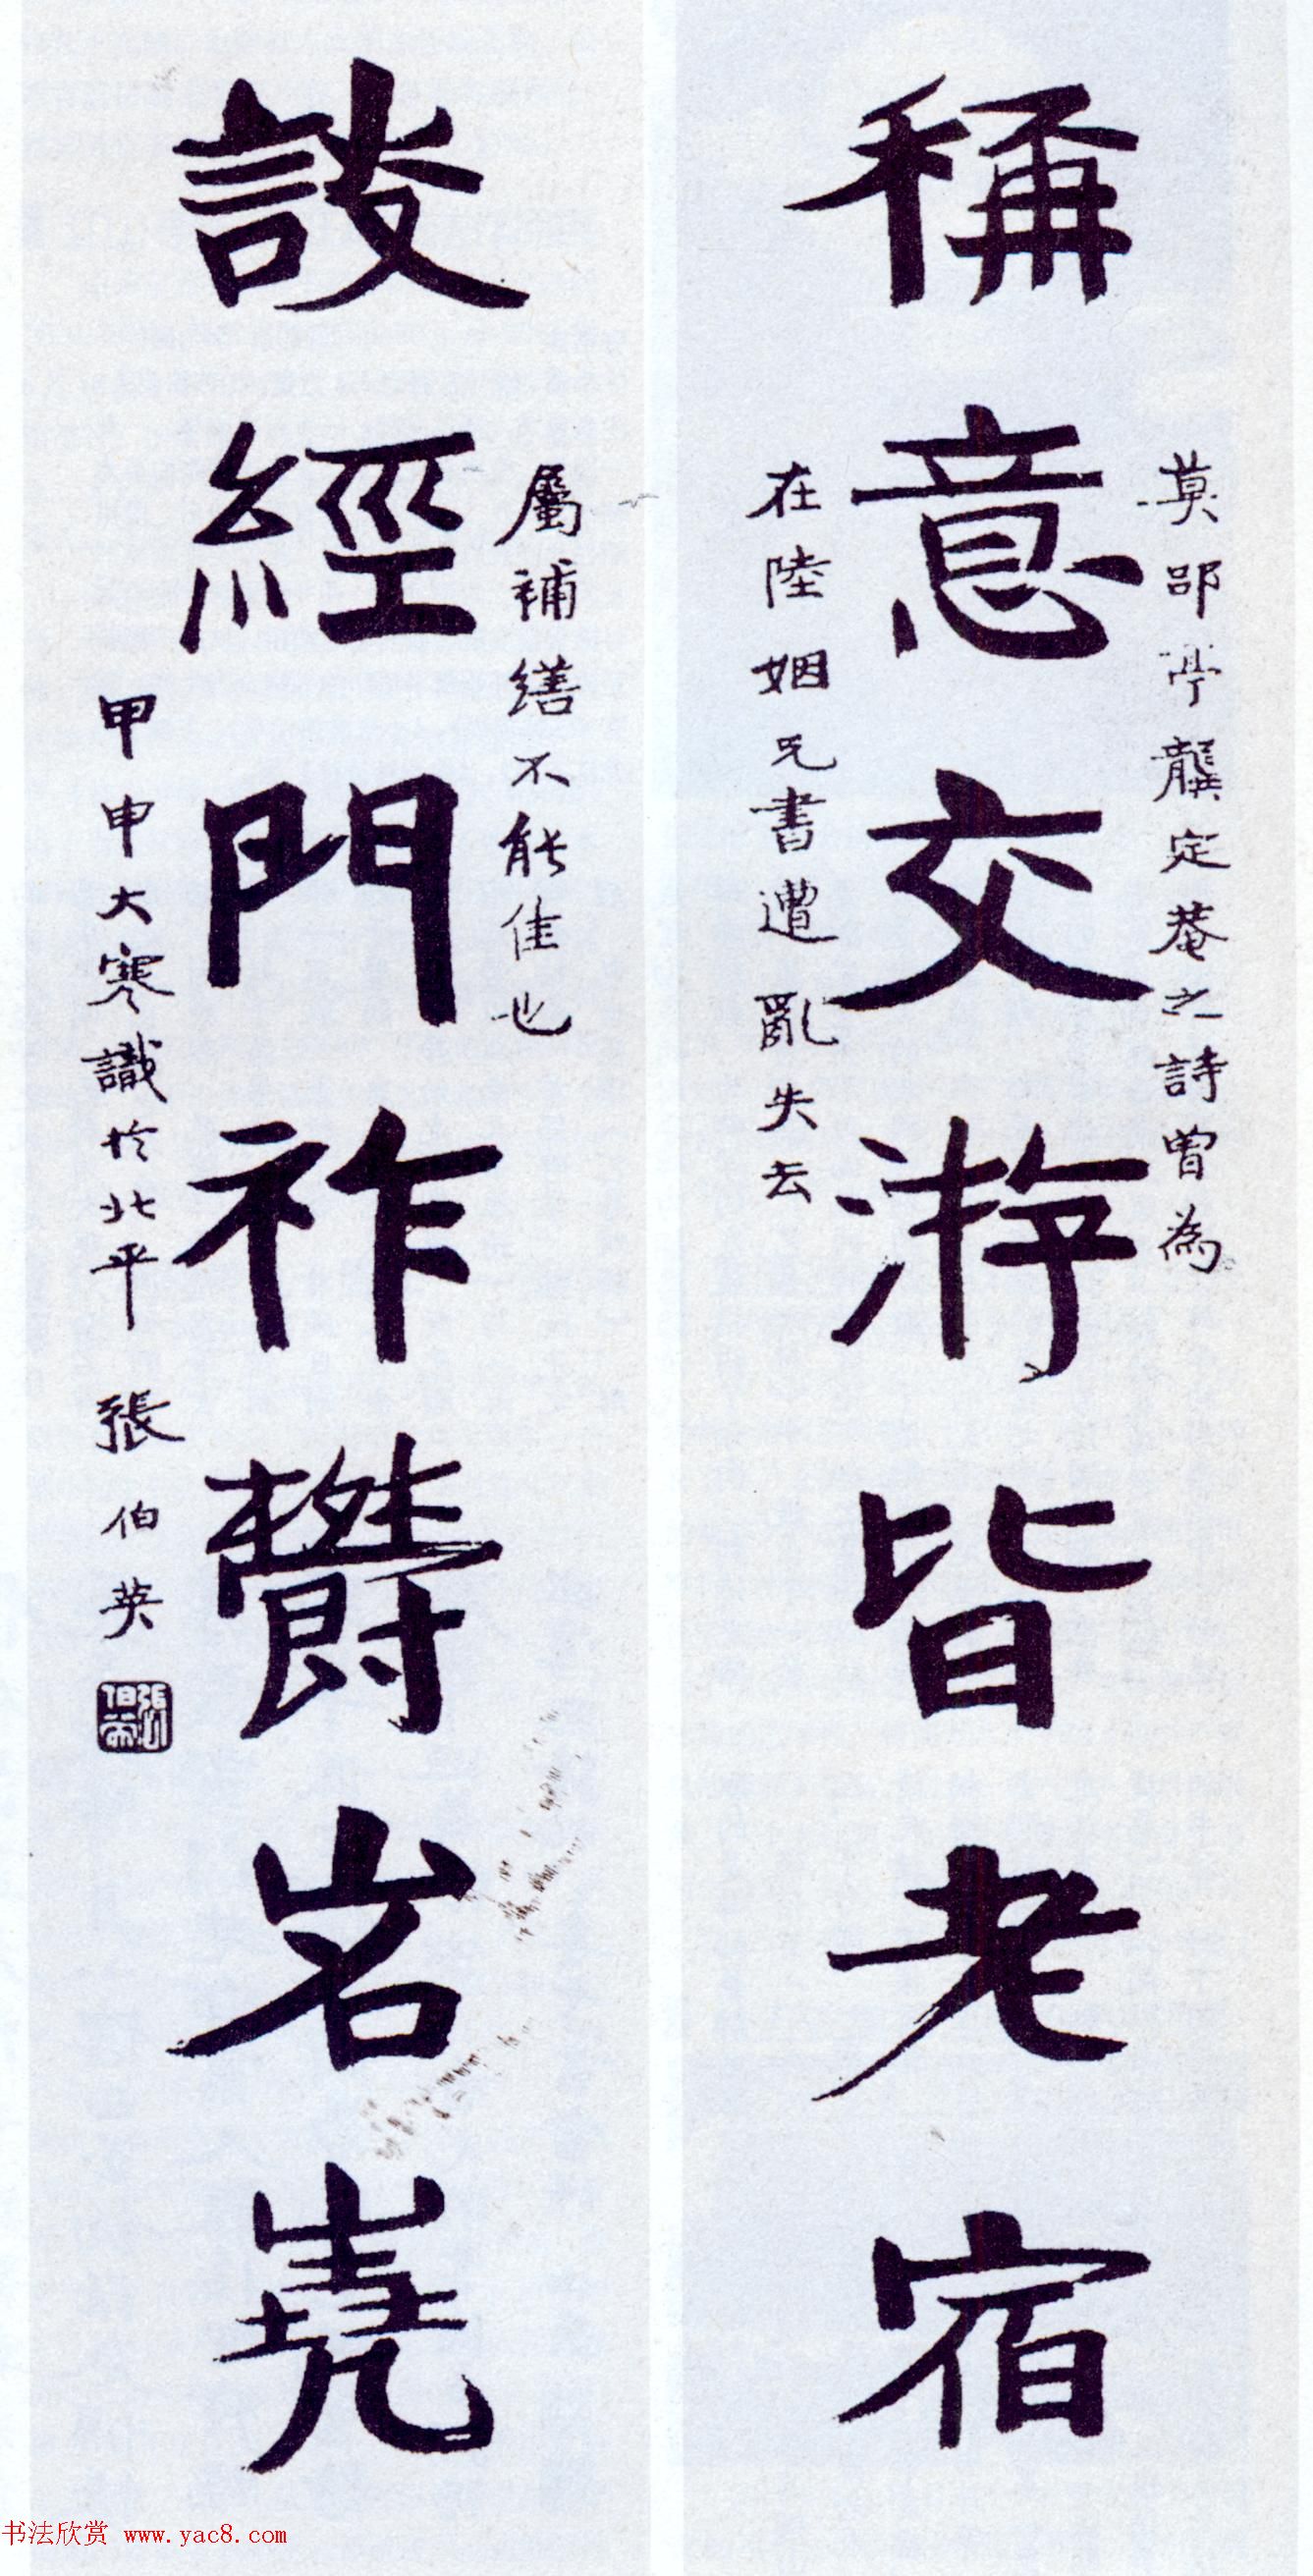 稱意交游皆老宿
莫邵亭龔定菴之詩曾為
在陸姻兄書遭亂失去
設經門祚鬱岧嶤
屬補繕不能佳也
甲申大寒識於北平
張伯英
書法欣赏 www.yac8.com